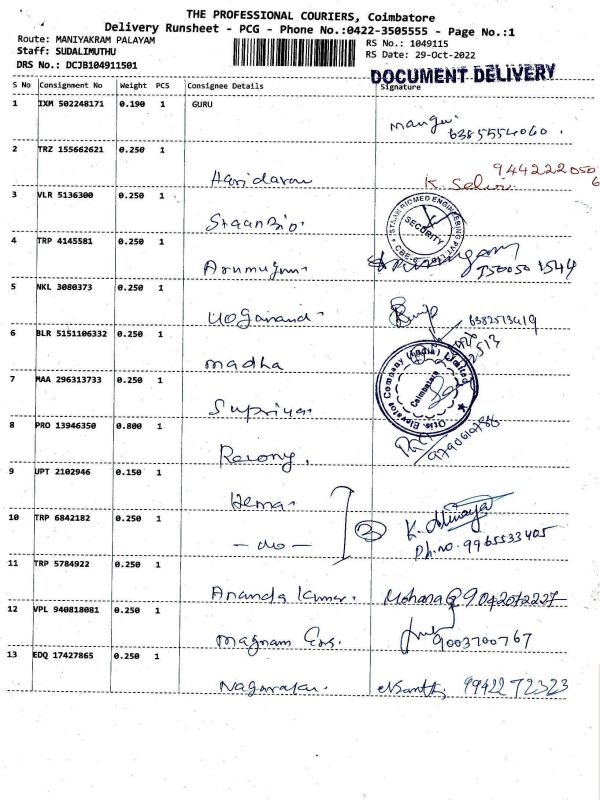 THE PROFESSIONAL COURIERS, Coimbatore
Delivery Runsheet - PCG - Phone No.:0422-3505555 - Page No.:1
Route: MANIYAKRAM PALAYAM
Staff: SUDALIMUTHU
DRS No.: DCJB104911501
RS No.: 1049115
RS Date: 29-Oct-2022
DOCUMENT DELIVERY
S No Consignment No Weight PCS Consignee Details Signature
1 IXM 502248171 0.190 1 GURU
6385554060.
2 TRZ 155662621 0.250 1
Haridaran K. Selvi
3 VLR 5136300 0.250 1
StaanBio. SECURITY
4 TRP 4145581 0.250 1
Arumugam
5 NKL 3080373 0.250 1
Yoganand 6382513419
6 BLR 5151106332 0.250 1
madha
7 MAA 296313733 0.250 1
Supriya Otis Elevator Company (India) Limited Coimbatore
8 PRO 13946350 0.800 1
9790610786
9 UPT 2102946 0.150 1
Hema
10 TRP 6842182 0.250 1
- do - Ph.no. 9965533405
11 TRP 5784922 0.250 1
Ananda Kumar. Mohana 9042072227
12 VPL 940818081 0.250 1
magnam 9003700767
13 EDQ 17427865 0.250 1
Nagarajan. 9942272323